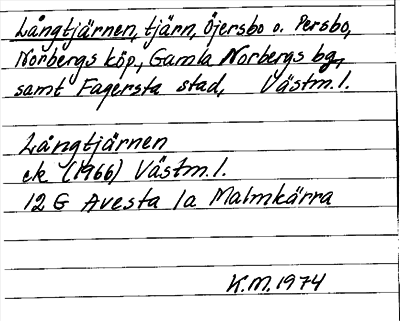 Långtjärnen, tjärn, Öjersbo o. Persbo,
Norbergs köp., Gamla Norbergs bg,
samt Fagersta stad, Västm.l.
Långtjärnen
ek (1966) Västm.l.
12 G Avesta 1a Malmkärra
K.M. 1974